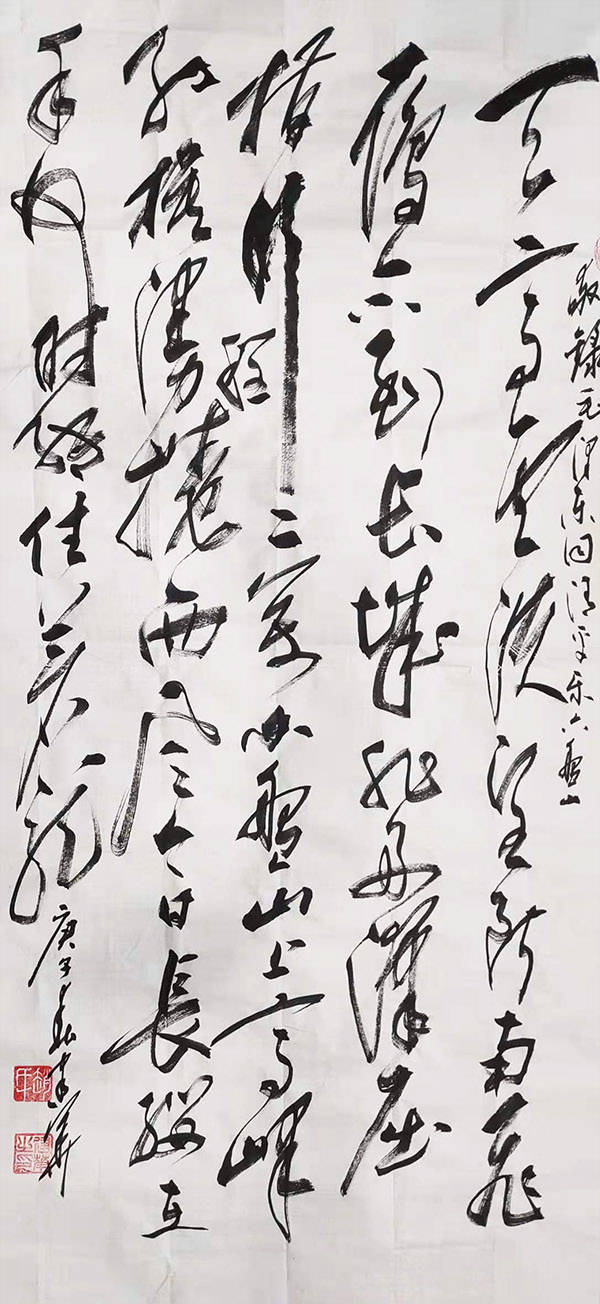 敬録毛泽东词清平乐六盘山
天高云淡望断南飞
雁不到长城非好汉屈
指行程二万六盘山上高峰
红旗漫捲西风今日長缨在
手何时缚住苍龙
庚子春